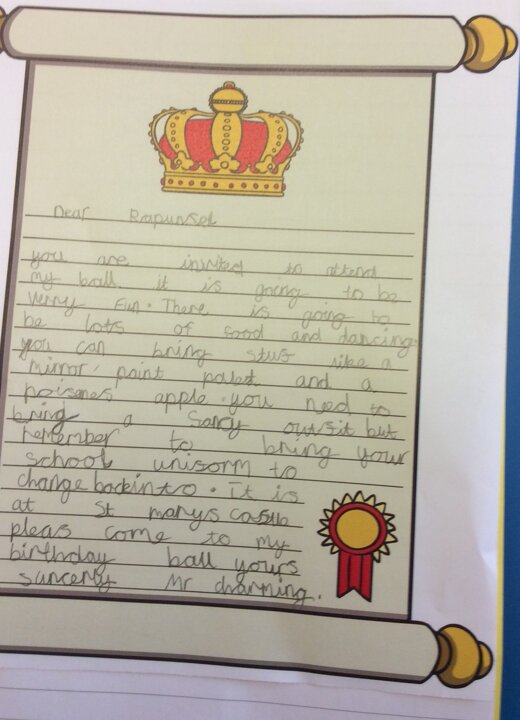 Dear Rapunsel
you are invited to attend
my ball. it is going to be
verry fun. There is going to
be lots of food and dancing.
you can bring stuf like a
mirror, paint palet and a
poisenes apple. you need to
bring a fancy outfit but
remember to bring your
school uniform to
change back into. It is
at St marys castle
pleas come to my
birthday ball yours
sancerly Mr charming.